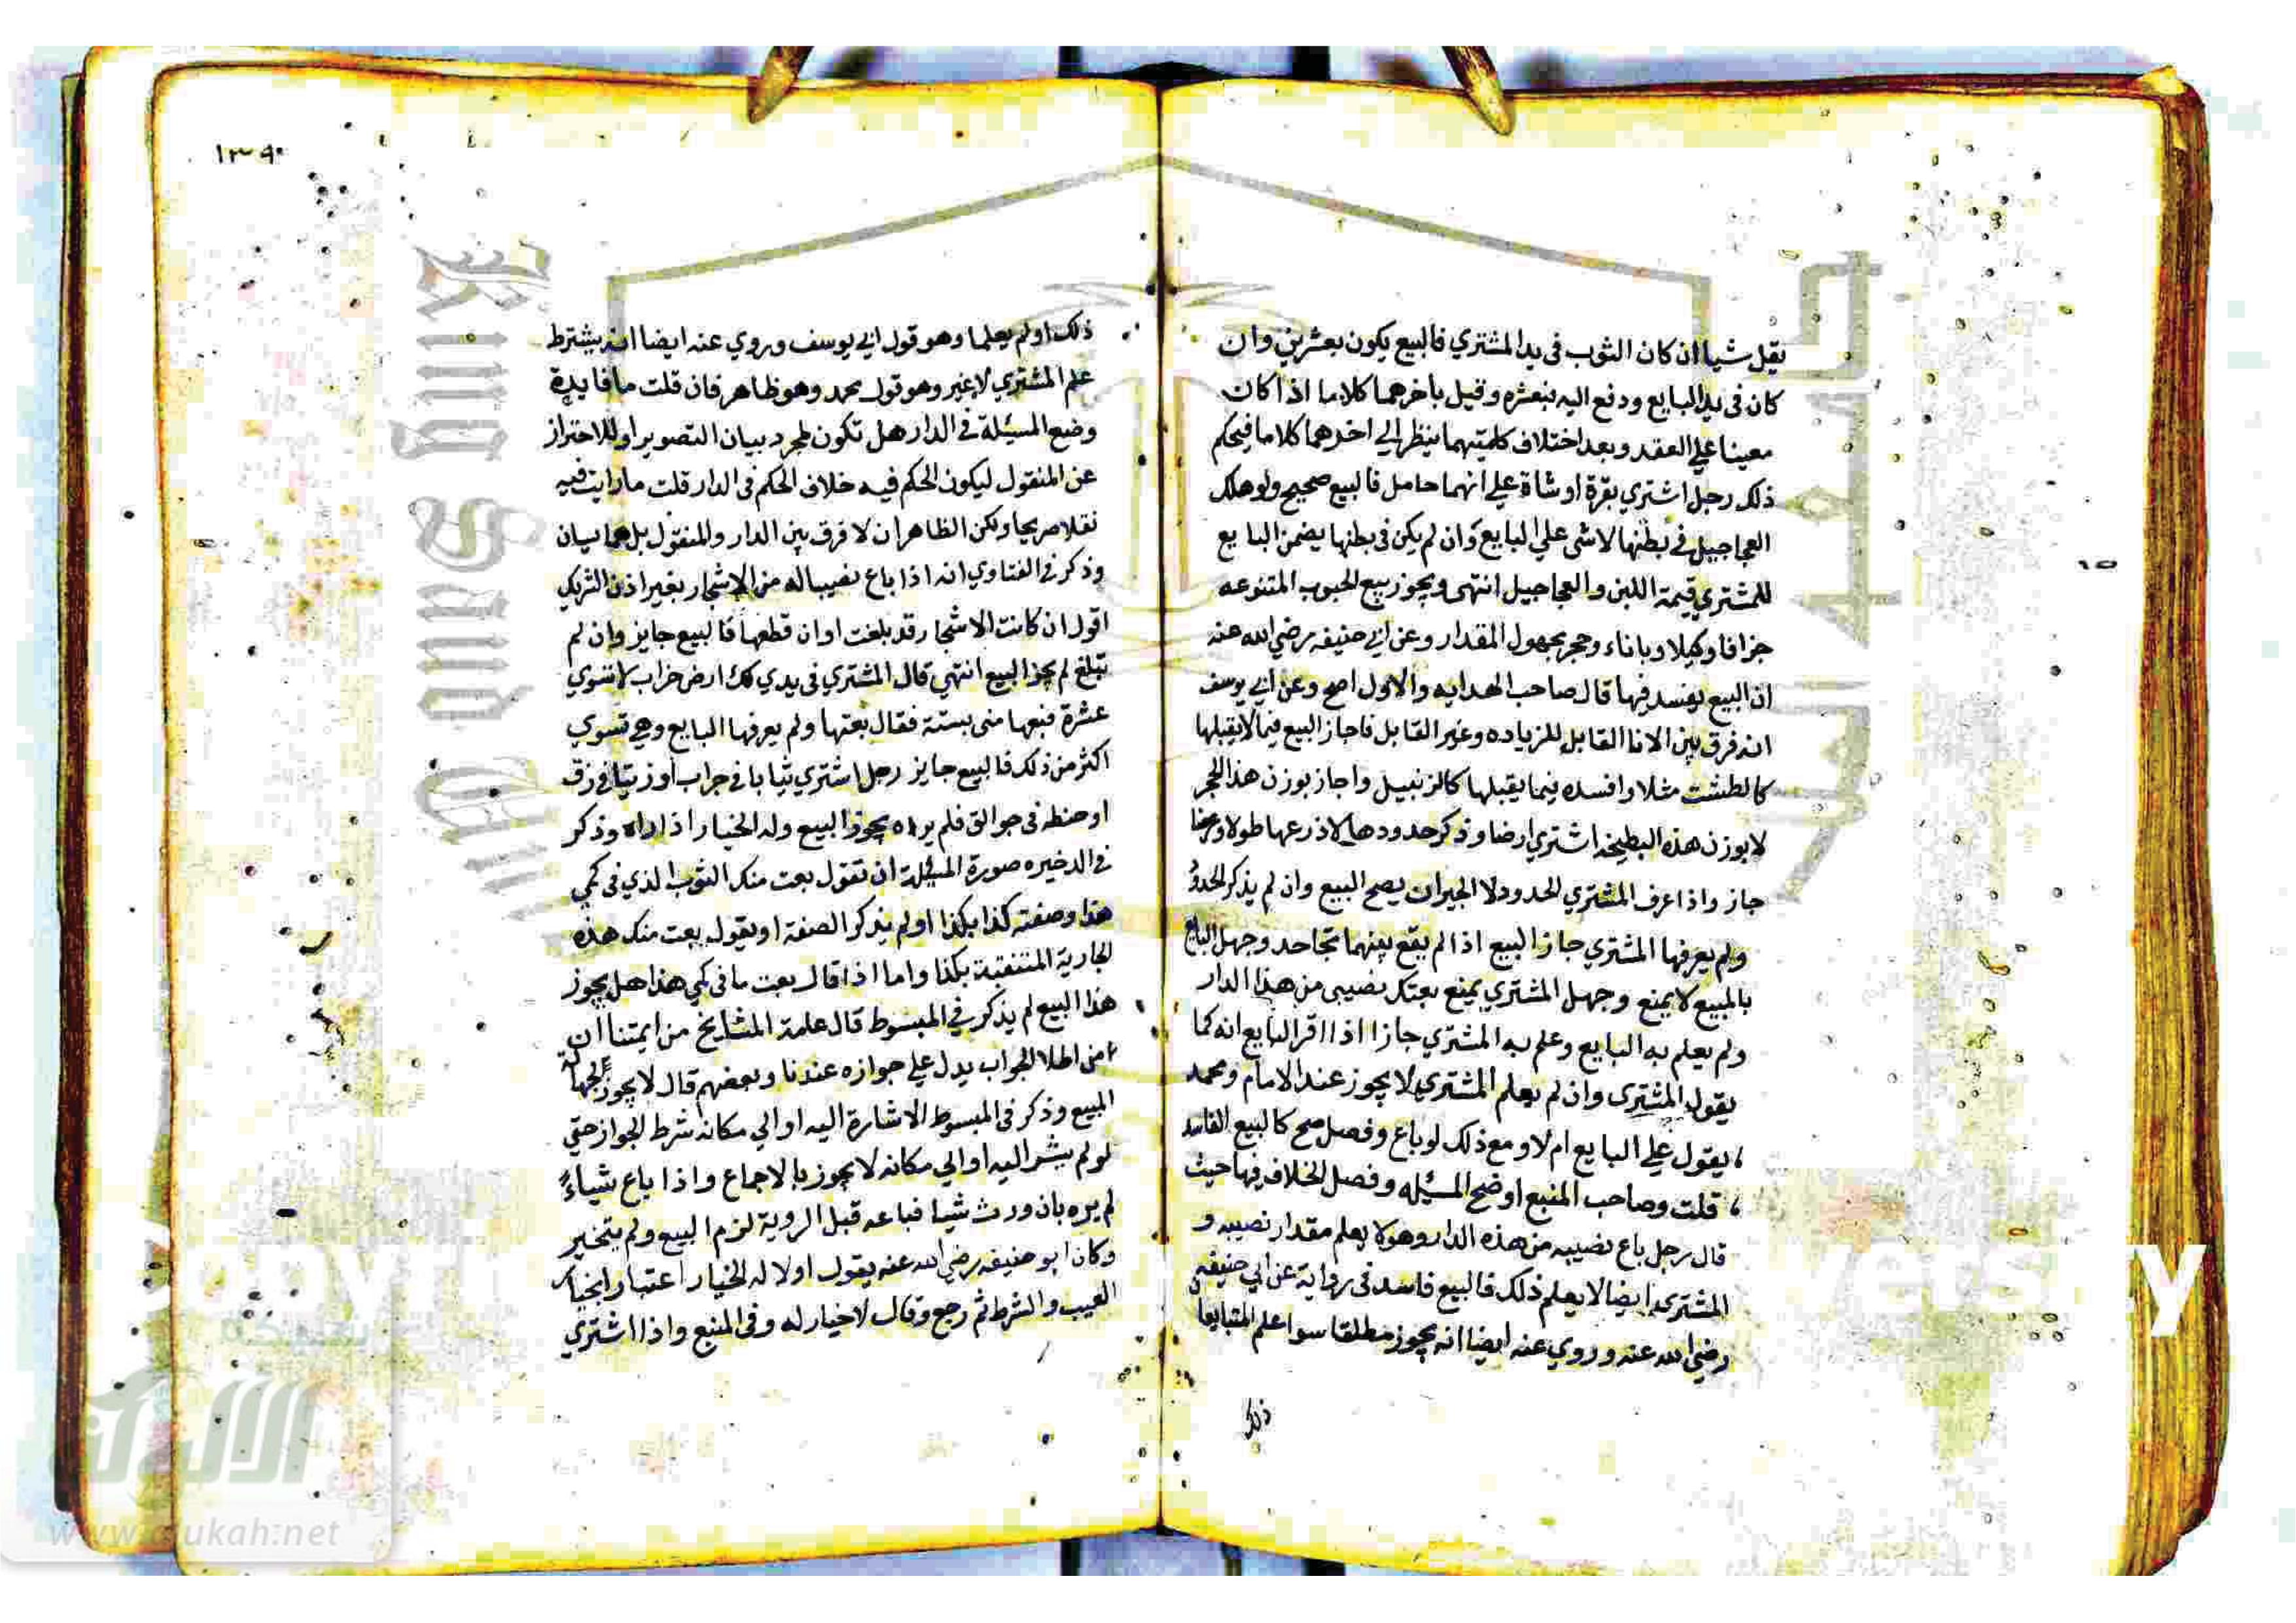 يقل شيا ان كان الثوب في يد المشتري فالبيع يكون بعشرين وان
كان في يد البايع ودفع اليه فبعشره وقيل باخرهما كلاما اذا كان
معينا علي العقد وبعد اختلاف كلمتيهما ينظر الي اخرهما كلاما فيحكم
ذلك رجل اشتري بقرة او شاة علي انهما حامل فالبيع صحيح ولو هلك
العجاجيل في بطنها لا شي علي البايع وان لم يكن في بطنها يضمن البايع
للمشتري قيمة اللبن والعجاجيل انتهى ويجوز بيع الحبوب المتنوعه
جزافا وكيلا وباناء وحجر مجهول المقدار وعن ابي حنيفه رضي الله عنه
ان البيع يفسد فيها قال صاحب الهدايه والاول اصح وعن ابي يوسف
انه فرق بين الانا القابل للزياده وغير القابل فاجاز البيع فيما لا يقبلها
كالطشت مثلا وافسده فيما يقبلها كالزنبيل واجاز بوزن هذا الحجر
لا بوزن هذه البطيخه اشتري ارضا وذكر حدودها لا ذرعها طولا وعرضا
جاز واذا عرف المشتري الحدود لا الجيران يصح البيع وان لم يذكر الحدود
ولم يعرفها المشتري جاز البيع اذا لم يقع بينهما تجاحد وجهل البايع
بالمبيع لا يمنع وجهل المشتري يمنع بعتك نصيبي من هذا الدار
ولم يعلم به البايع وعلم به المشتري جاز اذا اقر البايع انه كما
يقول المشتري وان لم يعلم المشتري لا يجوز عند الامام ومحمد
يقول علي البايع ام لا ومع ذلك لو باع وفصل صح كالبيع الفاسد
قلت وصاحب المنبع اوضح المسئله وفصل الخلاف فيها حيث
قال رجل باع نصيبه من هذه الدار وهو لا يعلم مقدار نصيبه و
المشتري ايضا لا يعلم ذلك فالبيع فاسد في رواية عن ابي حنيفه
رضي الله عنه وروي عنه ايضا انه يجوز مطلقا سوا علم المتبايعا
ذلك
١٣٩
ذلك او لم يعلما وهو قول ابي يوسف وروي عنه ايضا انه يشترط
علم المشتري لا غير وهو قول محمد وهو ظاهر فان قلت ما فايدة
وضع المسئلة في الدار هل تكون لمجرد بيان التصوير او للاحتراز
عن المنقول ليكون الحكم فيه خلاف الحكم في الدار قلت ما رايت فيه
نقلا صريحا ولكن الظاهر ان لا فرق بين الدار والمنقول بل هما سيان
وذكر في الفتاوي انه اذا باع نصيبا له من الاشجار بغير اذن الشريك
اقول ان كانت الاشجار قد بلغت اوان قطعها فالبيع جايز وان لم
تبلغ لم يجز البيع انتهي قال المشتري في يدي لك ارض خراب لا تسوي
عشرة فبعها مني بستة فقال بعتها ولم يعرفها البايع وهي تسوي
اكثر من ذلك فالبيع جايز رجل اشتري ثيابا في جراب او زيتا في زق
او حنطه في جوالق فلم يراه يجوز البيع وله الخيار اذا راه وذكر
في الدخيره صورة المسئلة ان تقول بعت منك الثوب الذي في كمي
هذا وصفته كذا بكذا او لم يذكر الصفة او يقول بعت منك هذه
الجارية المتنقبة بكذا واما اذا قال بعت ما في كمي هذا هل يجوز
هذا البيع لم يذكر في المبسوط قال عامة المشايخ من ايمتنا ان
الجواب يدل علي جوازه عندنا وبعضهم قال لا يجوز لجهالة
المبيع وذكر في المبسوط الاشارة اليه او الي مكانه شرط الجواز حتي
لو لم يشر اليه او الي مكانه لا يجوز بالاجماع واذا باع شياءً
لم يره بان ورث شيا فباعه قبل الروية لزم البيع ولم يتخير
وكان ابو حنيفه رضي الله عنه يقول اولا له الخيار اعتبارا بخيار
العيب والشرط ثم رجع وقال لا خيار له وفي المنبع واذا اشتري